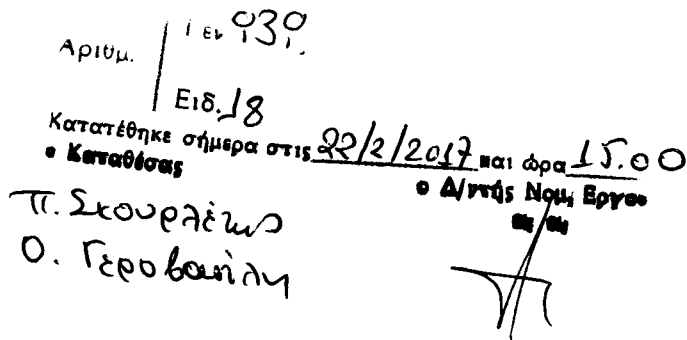 Αριθμ. Γεν. 939
Ειδ. 18
Κατατέθηκε σήμερα στις 22/2/2017 και ώρα 15.00
ο Καταθέσας
ο Δ/ντής Νομ. Εργου
Π. Σκουρλέτης
Ο. Γεροβασίλη